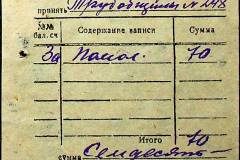 принять Трудовщины № 248
№№ бал. сч Содержание записи Сумма
За Помог. 70
Итого 70
сумма Семдесять